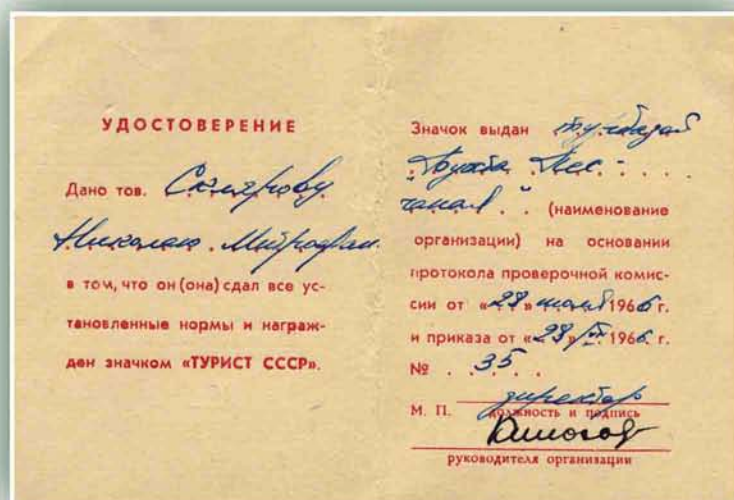 УДОСТОВЕРЕНИЕ
Дано тов. Склярову
Николаю Митрофан
в том, что он (она) сдал все ус-
тановленные нормы и награж-
ден значком «ТУРИСТ СССР».
Значок выдан турбазой
"Бухта Пес-
чаная" (наименование
организации) на основании
протокола проверочной комис-
сии от «28» июля 1966 г.
и приказа от «28» 1966 г.
№ 35
директор
М. П. должность и подпись
руководителя организации